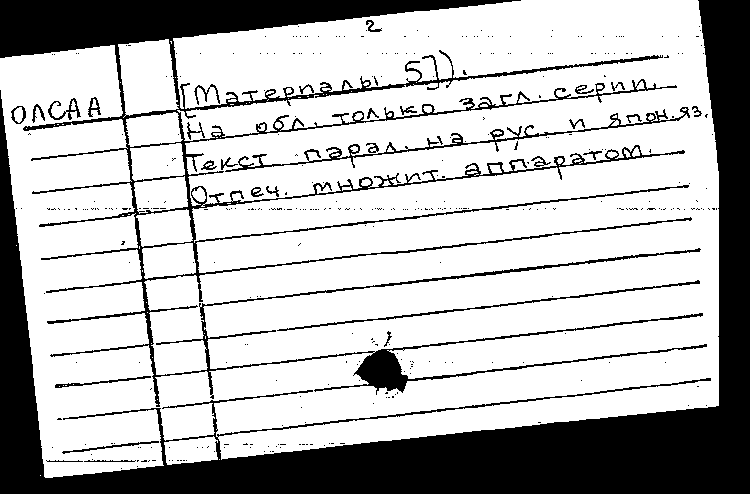 2
[Материалы 5]).
ОЛСАА
На обл. только загл. серии.
Текст парал. на рус. и япон.яз.
Отпеч. множит. аппаратом.